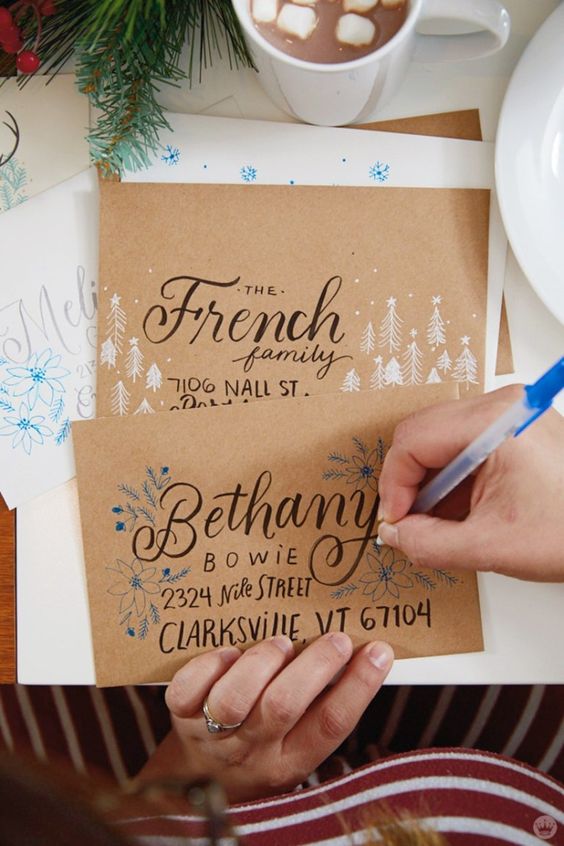 THE
French
family
7106 NALL ST.
Bethany
BOWIE
2324 Nile STREET
CLARKSVILLE, VT 67104